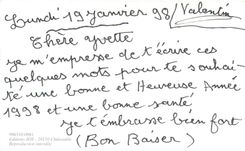 Lundi 19 janvier 98/Valentin
Chère yvette
je m'empresse de t'écrire ces
quelques mots pour te souhai-
té une bonne et Heureuse Année
1998 et une bonne santé
je t'embrasse bien fort
(Bon Baiser)
Reproduction interdite